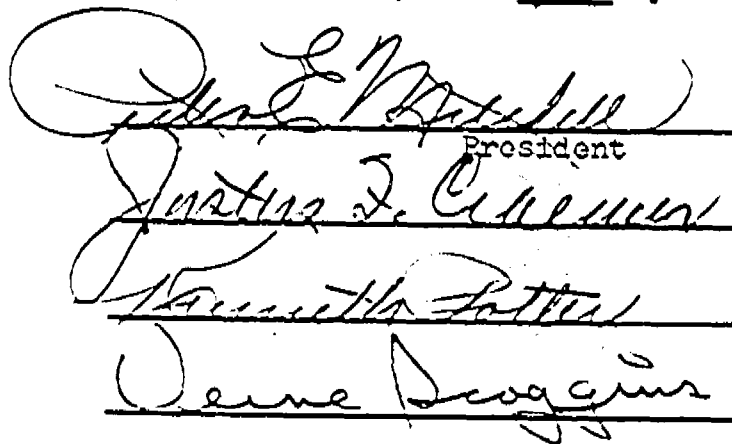 Peter E Mitchell
President
Justus F. Craemer
Kenneth Potter
Verne Scoggins